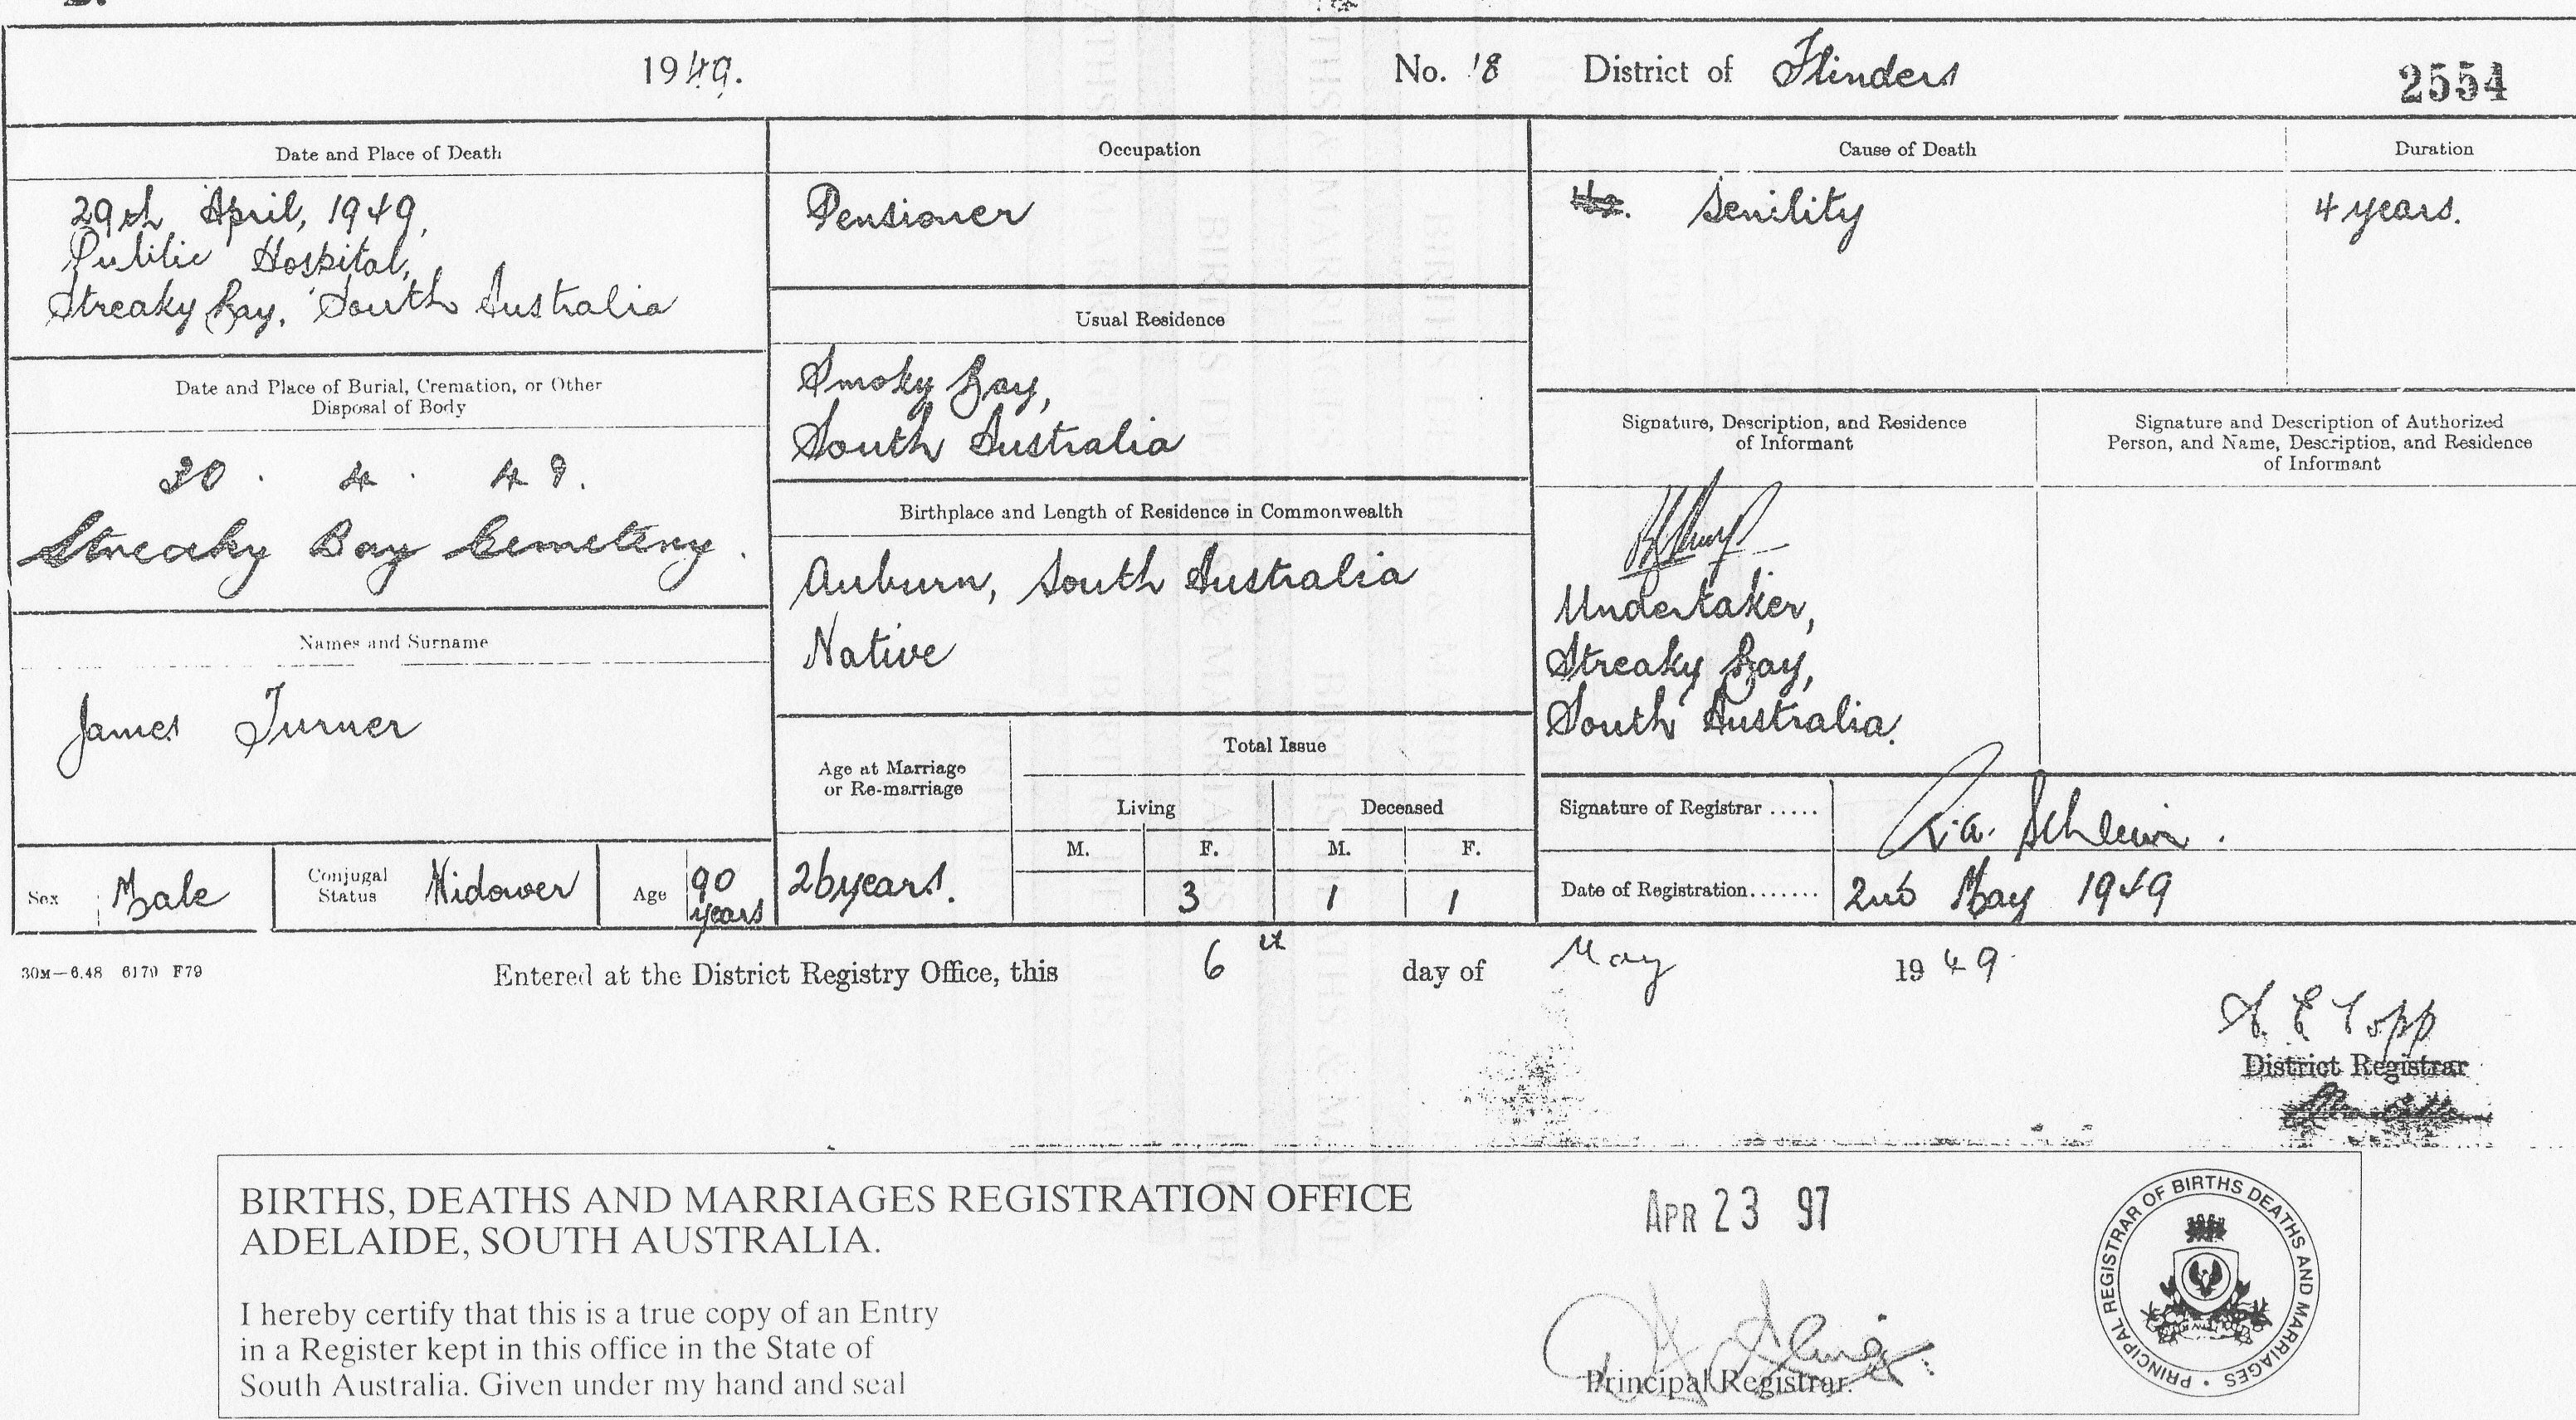 1949.
No. 18 District of Flinders 2554
Date and Place of Death
29th April, 1949,
Public Hospital,
Streaky Bay, South Australia
Date and Place of Burial, Cremation, or Other
Disposal of Body
30 . 4 . 49.
Streaky Bay Cemetery.
Names and Surname
James Turner
Sex Male Conjugal Status Widower Age 90 years
Occupation
Pensioner
Usual Residence
Smoky Bay,
South Australia
Birthplace and Length of Residence in Commonwealth
Auburn, South Australia
Native
Age at Marriage
or Re-marriage
26 years.
Total Issue
Living Deceased
M. F. M. F.
3 1 1
Cause of Death Duration
Senility 4 years.
Signature, Description, and Residence
of Informant
Undertaker,
Streaky Bay,
South Australia.
Signature and Description of Authorized
Person, and Name, Description, and Residence
of Informant
Signature of Registrar .....
Date of Registration....... 2nd May 1949
30M—6.48 6170 F79
Entered at the District Registry Office, this 6th day of May 1949.
District Registrar
BIRTHS, DEATHS AND MARRIAGES REGISTRATION OFFICE
ADELAIDE, SOUTH AUSTRALIA.
I hereby certify that this is a true copy of an Entry
in a Register kept in this office in the State of
South Australia. Given under my hand and seal
APR 23 97
Principal Registrar.
PRINCIPAL REGISTRAR OF BIRTHS DEATHS AND MARRIAGES